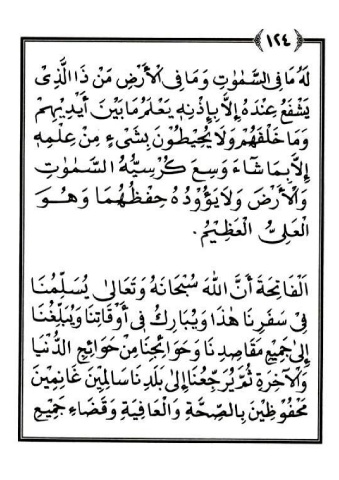 ١٢٤
لَهُ مَا فِى السَّمٰوٰتِ وَمَا فِى الْأَرْضِ مَنْ ذَا الَّذِيْ
يَشْفَعُ عِنْدَهُ إِلَّا بِإِذْنِهِ يَعْلَمُ مَا بَيْنَ أَيْدِيْهِمْ
وَمَا خَلْفَهُمْ وَلَا يُحِيْطُوْنَ بِشَيْءٍ مِنْ عِلْمِهِ
إِلَّا بِمَا شَاءَ وَسِعَ كُرْسِيُّهُ السَّمٰوٰتِ
وَالْأَرْضَ وَلَا يَؤُوْدُهُ حِفْظُهُمَا وَهُوَ
الْعَلِيُّ الْعَظِيْمُ.
اَلْفَاتِحَةَ أَنَّ اللهَ سُبْحَانَهُ وَتَعَالَى يُسَلِّمُنَا
فِي سَفَرِنَا هٰذَا وَيُبَارِكُ فِي أَوْقَاتِنَا وَيُبَلِّغُنَا
إِلَى جَمِيْعِ مَقَاصِدِنَا وَحَوَائِجِنَا مِنْ حَوَائِجِ الدُّنْيَا
وَالْآخِرَةِ ثُمَّ يُرَجِّعُنَا إِلَى بَلَدِنَا سَالِمِيْنَ غَانِمِيْنَ
مَحْفُوْظِيْنَ بِالصِّحَّةِ وَالْعَافِيَةِ وَقَضَاءِ جَمِيْعِ